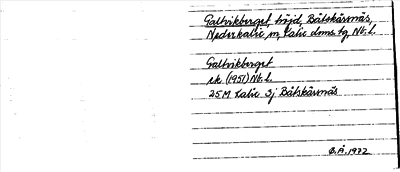 Galtvikberget höjd, Båtskärsnäs,
Nederkalix sn, Kalix dmns tg Nb.l.
Galtvikberget
ek (1951) Nb.l.
25M Kalix 3j Båtskärsnäs
B.Å. 1972